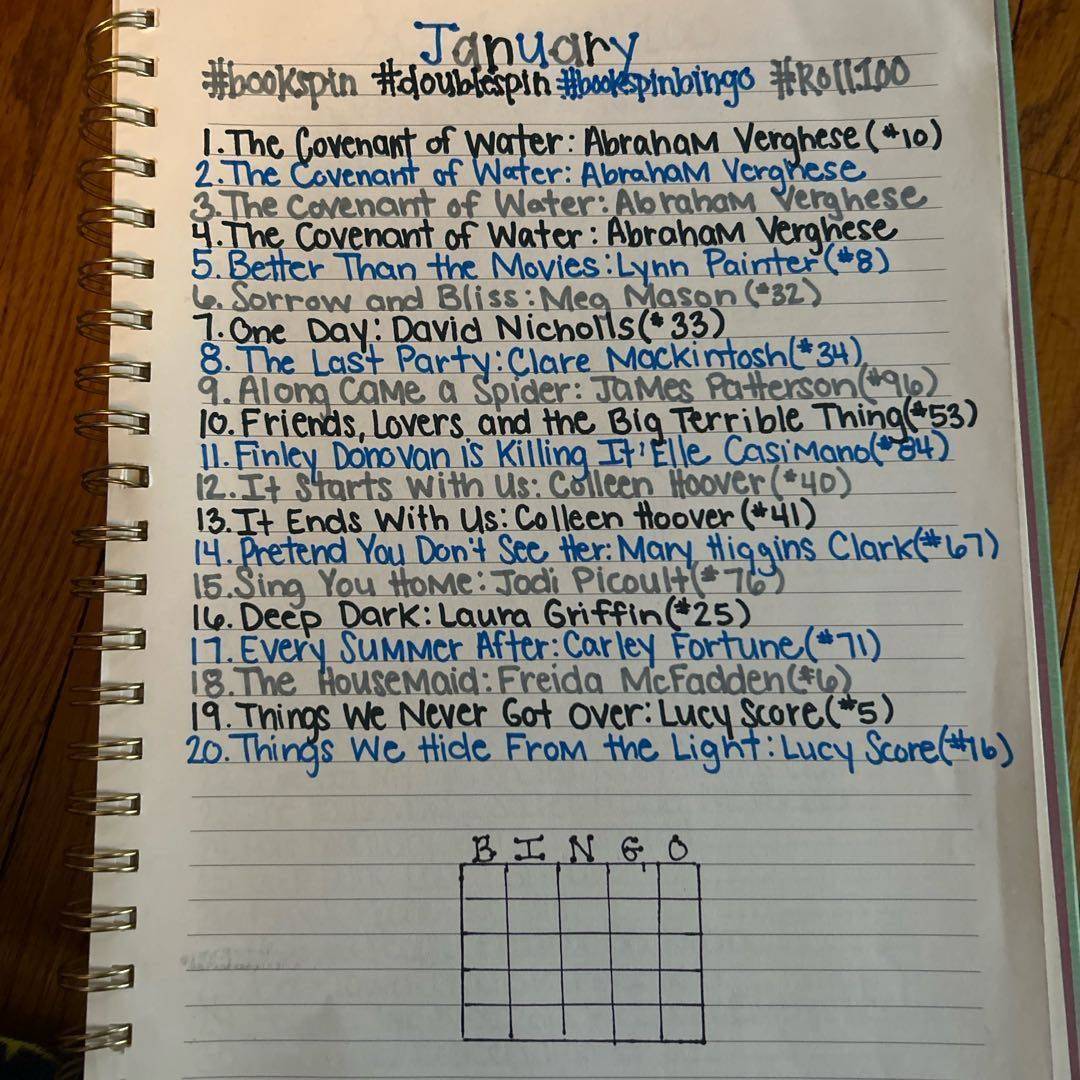 January
#bookspin #doublespin #bookspinbingo #Roll100
1. The Covenant of Water: Abraham Verghese (#10)
2. The Covenant of Water: Abraham Verghese
3. The Covenant of Water: Abraham Verghese
4. The Covenant of Water: Abraham Verghese
5. Better Than the Movies: Lynn Painter (#8)
6. Sorrow and Bliss: Meg Mason (#32)
7. One Day: David Nicholls (#33)
8. The Last Party: Clare Mackintosh (#34)
9. Along Came a Spider: James Patterson (#96)
10. Friends, Lovers and the Big Terrible Thing (#53)
11. Finley Donovan is Killing It: Elle Casimano (#84)
12. It Starts With Us: Colleen Hoover (#40)
13. It Ends With Us: Colleen Hoover (#41)
14. Pretend You Don't See Her: Mary Higgins Clark (#67)
15. Sing You Home: Jodi Picoult (#76)
16. Deep Dark: Laura Griffin (#25)
17. Every Summer After: Carley Fortune (#71)
18. The Housemaid: Freida McFadden (#6)
19. Things We Never Got Over: Lucy Score (#5)
20. Things We Hide From the Light: Lucy Score (#16)
B I N G O